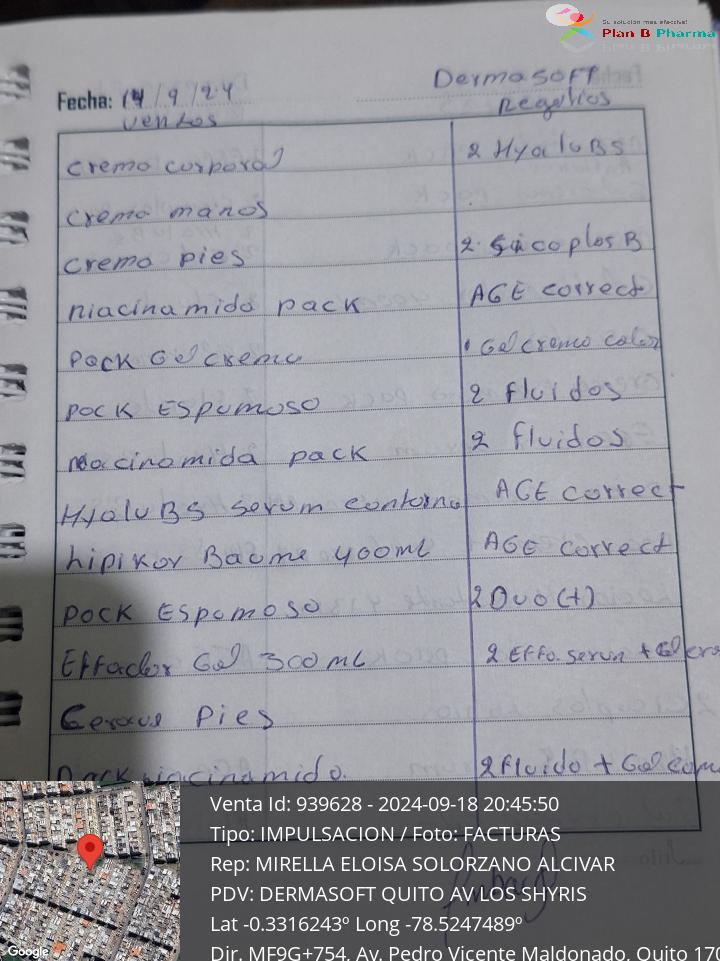 Su solución más efectiva!
Plan B Pharma
DermaSOFT
Fecha: 14/9/24
Regalios
ventas
crema corporal
2 HyaluBS
crema manos
crema pies
2. Sicoplas B
niacinamida pack
AGE correct
Pack Gel crema
1 Gel crema color
Pack ESPUMOSO
2 Fluidos
niacinamida pack
2 fluidos
HyaluBS serum contorno
AGE correct
Lipikar Baume 400ml
AGE correct
Pack ESPOMOSO
2 Duo (+)
Effaclar Gel 300 ML
2 Effa. serun + Gel cre
Cerave Pies
Pack niacinamida.
2 Fluido + Gel
Google
Venta Id: 939628 - 2024-09-18 20:45:50
Tipo: IMPULSACION / Foto: FACTURAS
Rep: MIRELLA ELOISA SOLORZANO ALCIVAR
PDV: DERMASOFT QUITO AV LOS SHYRIS
Lat -0.3316243º Long -78.5247489º
Dir. MF9G+754, Av. Pedro Vicente Maldonado, Quito 170